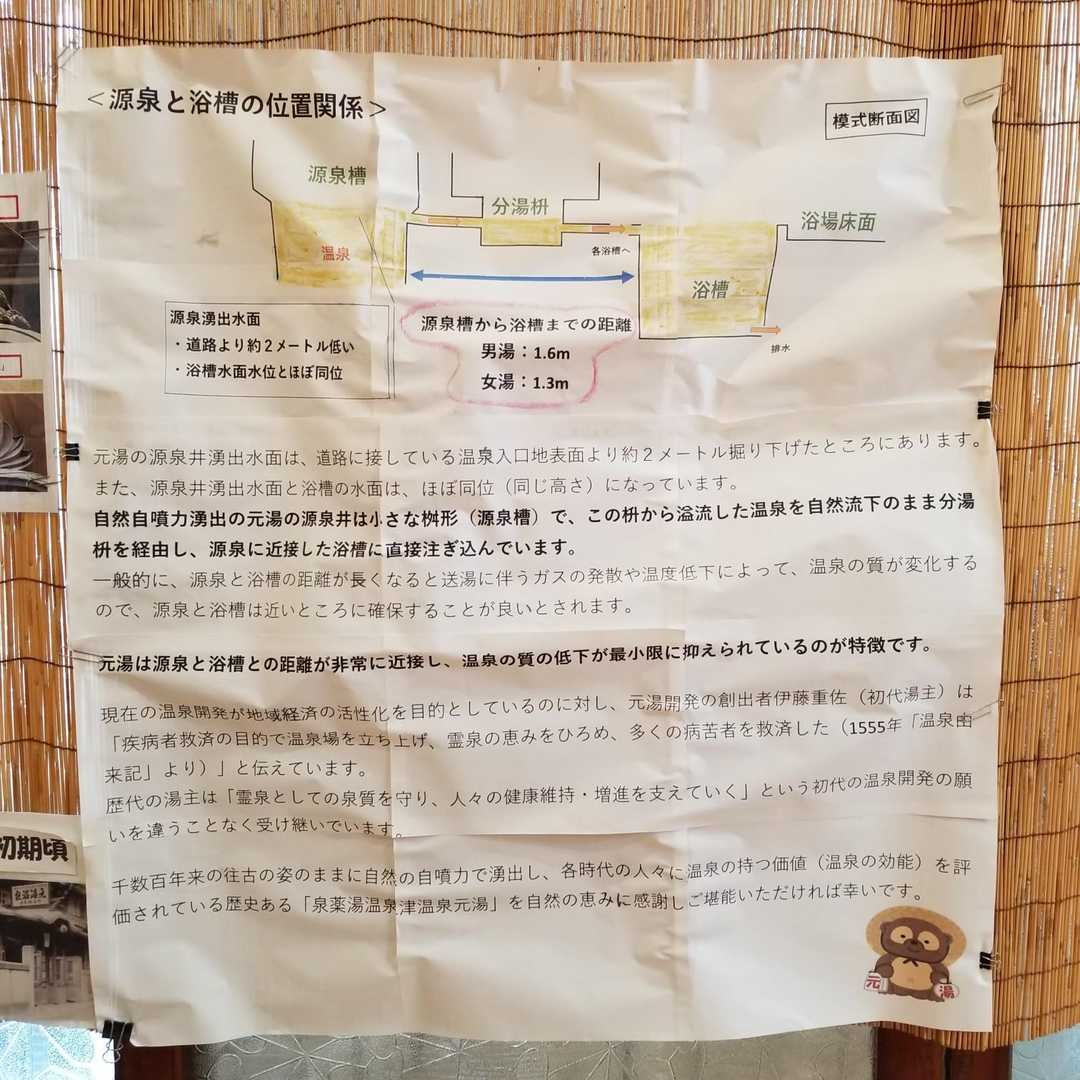 ＜源泉と浴槽の位置関係＞
模式断面図
源泉槽
分湯枡
浴場床面
温泉
各浴槽へ
浴槽
排水
源泉湧出水面
・道路より約２メートル低い
・浴槽水面水位とほぼ同位
源泉槽から浴槽までの距離
男湯：1.6m
女湯：1.3m
元湯の源泉井湧出水面は、道路に接している温泉入口地表面より約２メートル掘り下げたところにあります。
また、源泉井湧出水面と浴槽の水面は、ほぼ同位（同じ高さ）になっています。
自然自噴力湧出の元湯の源泉井は小さな桝形（源泉槽）で、この枡から溢流した温泉を自然流下のまま分湯
枡を経由し、源泉に近接した浴槽に直接注ぎ込んでいます。
一般的に、源泉と浴槽の距離が長くなると送湯に伴うガスの発散や温度低下によって、温泉の質が変化する
ので、源泉と浴槽は近いところに確保することが良いとされます。
元湯は源泉と浴槽との距離が非常に近接し、温泉の質の低下が最小限に抑えられているのが特徴です。
現在の温泉開発が地域経済の活性化を目的としているのに対し、元湯開発の創出者伊藤重佐（初代湯主）は
「疾病者救済の目的で温泉場を立ち上げ、霊泉の恵みをひろめ、多くの病苦者を救済した（1555年「温泉由
来記」より）」と伝えています。
歴代の湯主は「霊泉としての泉質を守り、人々の健康維持・増進を支えていく」という初代の温泉開発の願
いを違うことなく受け継いでいます。
千数百年来の往古の姿のままに自然の自噴力で湧出し、各時代の人々に温泉の持つ価値（温泉の効能）を評
価されている歴史ある「泉薬湯温泉津温泉元湯」を自然の恵みに感謝しご堪能いただければ幸いです。
元 湯
初期頃